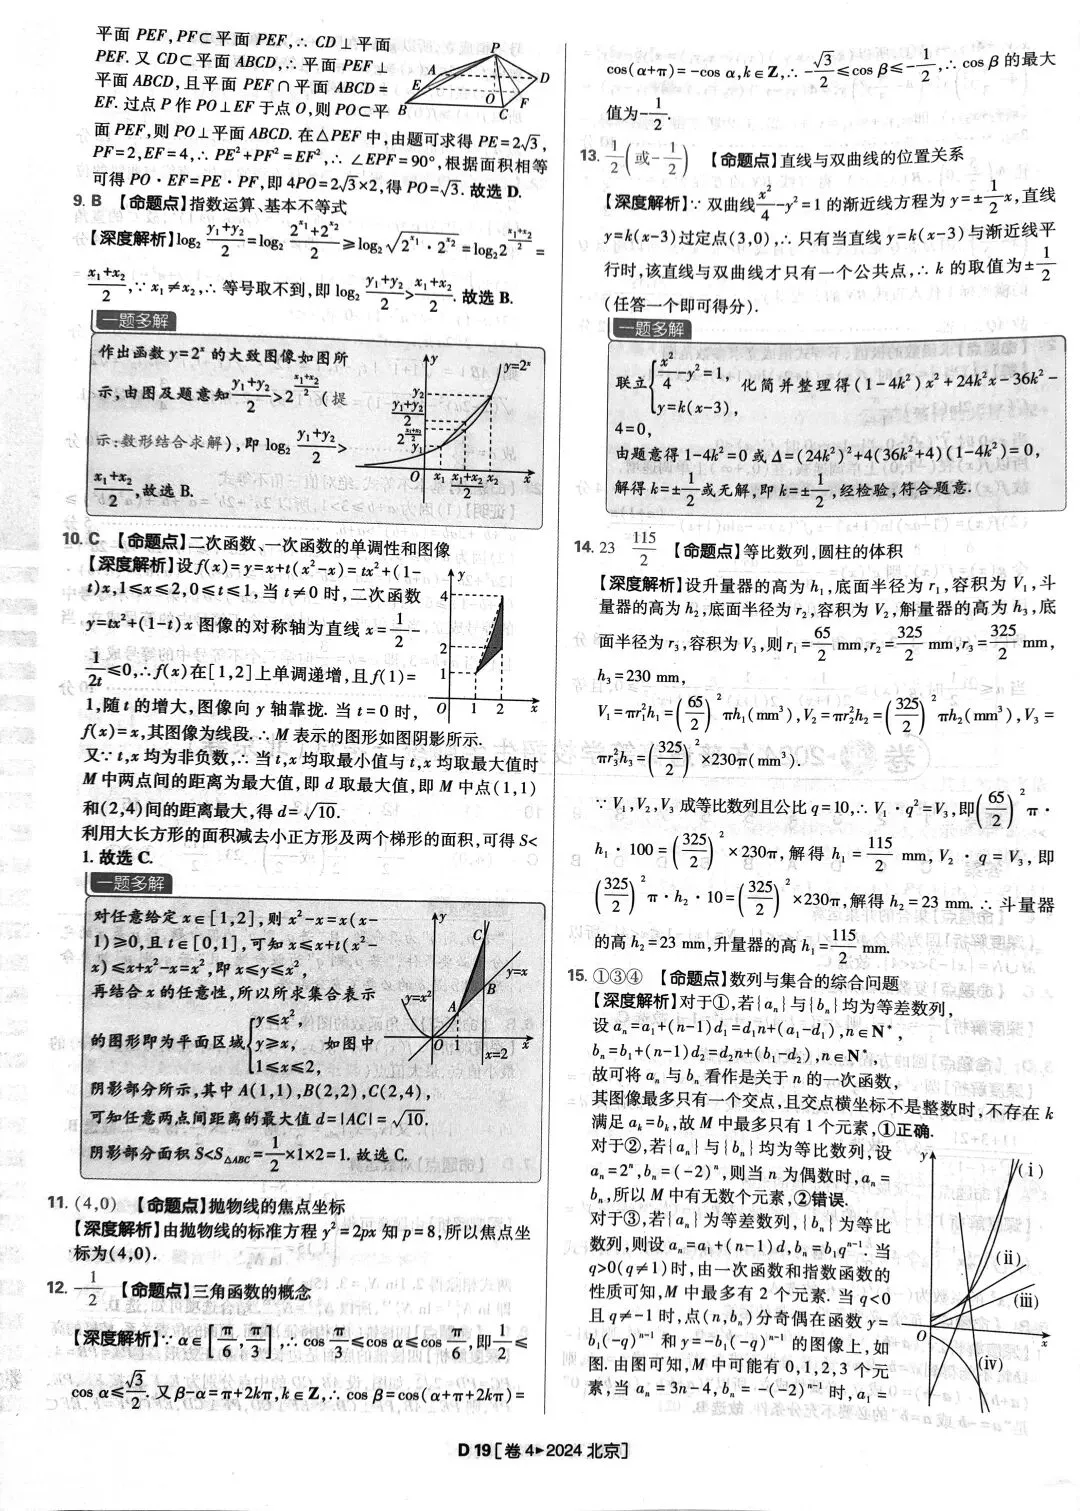 平面 PEF,PF⊂平面 PEF,∴ CD⊥平面
PEF. 又 CD⊂平面 ABCD,∴ 平面 PEF⊥
平面 ABCD,且平面 PEF∩平面 ABCD=
EF. 过点 P 作 PO⊥EF 于点 O,则 PO⊂平
面 PEF,则 PO⊥平面 ABCD. 在△PEF 中,由题可求得 PE=2√3,
PF=2,EF=4,∴ PE²+PF²=EF²,∴ ∠EPF=90°,根据面积相等
可得 PO·EF=PE·PF,即 4PO=2√3×2,得 PO=√3. 故选 D.
9. B 【命题点】指数运算、基本不等式
【深度解析】log₂ (y₁+y₂)/2=log₂ (2^{x₁}+2^{x₂})/2≥log₂√(2^{x₁}·2^{x₂})=log₂2^{(x₁+x₂)/2}=
(x₁+x₂)/2,∵ x₁≠x₂,∴ 等号取不到,即 log₂ (y₁+y₂)/2>(x₁+x₂)/2. 故选 B.
一题多解
作出函数 y=2ˣ 的大致图像如图所
示,由图及题意知 (y₁+y₂)/2>2^{(x₁+x₂)/2}(提
示:数形结合求解),即 log₂ (y₁+y₂)/2>
(x₁+x₂)/2,故选 B.
10. C 【命题点】二次函数、一次函数的单调性和图像
【深度解析】设 f(x)=y=x+t(x²-x)=tx²+(1-
t)x,1≤x≤2,0≤t≤1,当 t≠0 时,二次函数
y=tx²+(1-t)x 图像的对称轴为直线 x=1/2-
1/(2t)≤0,∴f(x)在[1,2]上单调递增,且 f(1)=
1,随 t 的增大,图像向 y 轴靠拢. 当 t=0 时,
f(x)=x,其图像为线段.∴ M 表示的图形如图阴影所示.
又∵ t,x 均为非负数,∴ 当 t,x 均取最小值与 t,x 均取最大值时
M 中两点间的距离为最大值,即 d 取最大值,即 M 中点(1,1)
和(2,4)间的距离最大,得 d=√10.
利用大长方形的面积减去小正方形及两个梯形的面积,可得 S<
1. 故选 C.
一题多解
对任意给定 x∈[1,2],则 x²-x=x(x-
1)≥0,且 t∈[0,1],可知 x≤x+t(x²-
x)≤x+x²-x=x²,即 x≤y≤x²,
再结合 x 的任意性,所以所求集合表示
的图形即为平面区域{y≤x², y≥x, 1≤x≤2, 如图中
阴影部分所示,其中 A(1,1),B(2,2),C(2,4),
可知任意两点间距离的最大值 d=|AC|=√10.
阴影部分面积 S<S△ABC=1/2×1×2=1. 故选 C.
11. (4,0) 【命题点】抛物线的焦点坐标
【深度解析】由抛物线的标准方程 y²=2px 知 p=8,所以焦点坐
标为(4,0).
12. -1/2 【命题点】三角函数的概念
【深度解析】∵ α∈[π/6,π/3],∴ cos π/3≤cos α≤cos π/6,即 1/2≤
cos α≤√3/2. 又 β-α=π+2kπ,k∈Z,∴ cos β=cos(α+π+2kπ)=
cos(α+π)=-cos α,k∈Z,∴ -√3/2≤cos β≤-1/2,∴ cos β 的最大
值为-1/2.
13. 1/2(或-1/2) 【命题点】直线与双曲线的位置关系
【深度解析】∵ 双曲线x²/4-y²=1 的渐近线方程为 y=±1/2x,直线
y=k(x-3)过定点(3,0),∴ 只有当直线 y=k(x-3)与渐近线平
行时,该直线与双曲线才只有一个公共点,∴ k 的取值为±1/2
(任答一个即可得分).
一题多解
联立{x²/4-y²=1, y=k(x-3), 化简并整理得(1-4k²)x²+24k²x-36k²-
4=0,
由题意得 1-4k²=0 或 Δ=(24k²)²+4(36k²+4)(1-4k²)=0,
解得 k=±1/2或无解,即 k=±1/2,经检验,符合题意.
14. 23 115/2 【命题点】等比数列,圆柱的体积
【深度解析】设升量器的高为 h₁,底面半径为 r₁,容积为 V₁,斗
量器的高为 h₂,底面半径为 r₂,容积为 V₂,斛量器的高为 h₃,底
面半径为 r₃,容积为 V₃,则 r₁=65/2 mm,r₂=325/2 mm,r₃=325/2 mm,
h₃=230 mm,
V₁=πr₁²h₁=(65/2)²πh₁(mm³),V₂=πr₂²h₂=(325/2)²πh₂(mm³),V₃=
πr₃²h₃=(325/2)²×230π(mm³).
∵ V₁,V₂,V₃ 成等比数列且公比 q=10,∴ V₁·q²=V₃,即(65/2)²π·
h₁·100=(325/2)²×230π,解得 h₁=115/2 mm,V₂·q=V₃,即
(325/2)²π·h₂·10=(325/2)²×230π,解得 h₂=23 mm.∴ 斗量器
的高 h₂=23 mm,升量器的高 h₁=115/2 mm.
15. ①③④ 【命题点】数列与集合的综合问题
【深度解析】对于①,若{aₙ}与{bₙ}均为等差数列,
设 aₙ=a₁+(n-1)d₁=d₁n+(a₁-d₁),n∈N*,
bₙ=b₁+(n-1)d₂=d₂n+(b₁-d₂),n∈N*,
故可将 aₙ 与 bₙ 看作是关于 n 的一次函数,
其图像最多只有一个交点,且交点横坐标不是整数时,不存在 k
满足 aₖ=bₖ,故 M 中最多只有 1 个元素,①正确.
对于②,若{aₙ}与{bₙ}均为等比数列,设
aₙ=2ⁿ,bₙ=(-2)ⁿ,则当 n 为偶数时,aₙ=
bₙ,所以 M 中有无数个元素,②错误.
对于③,若{aₙ}为等差数列,{bₙ}为等比
数列,则设 aₙ=a₁+(n-1)d,bₙ=b₁qⁿ⁻¹. 当
q>0(q≠1)时,由一次函数和指数函数的
性质可知,M 中最多有 2 个元素. 当 q<0
且 q≠-1 时,点(n,bₙ)分奇偶在函数 y=
b₁(-q)ⁿ⁻¹ 和 y=-b₁(-q)ⁿ⁻¹ 的图像上,如
图. 由图可知,M 中可能有 0,1,2,3 个元
素,当 aₙ=3n-4,bₙ=-(-2)ⁿ⁻¹ 时,a₁=
D 19 [卷 4▸2024 北京]